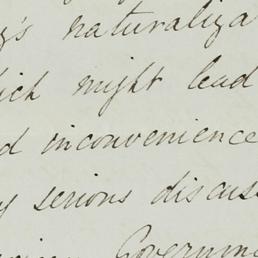 's naturaliza
ich might lead
d inconvenience
y serious discuss
Governm